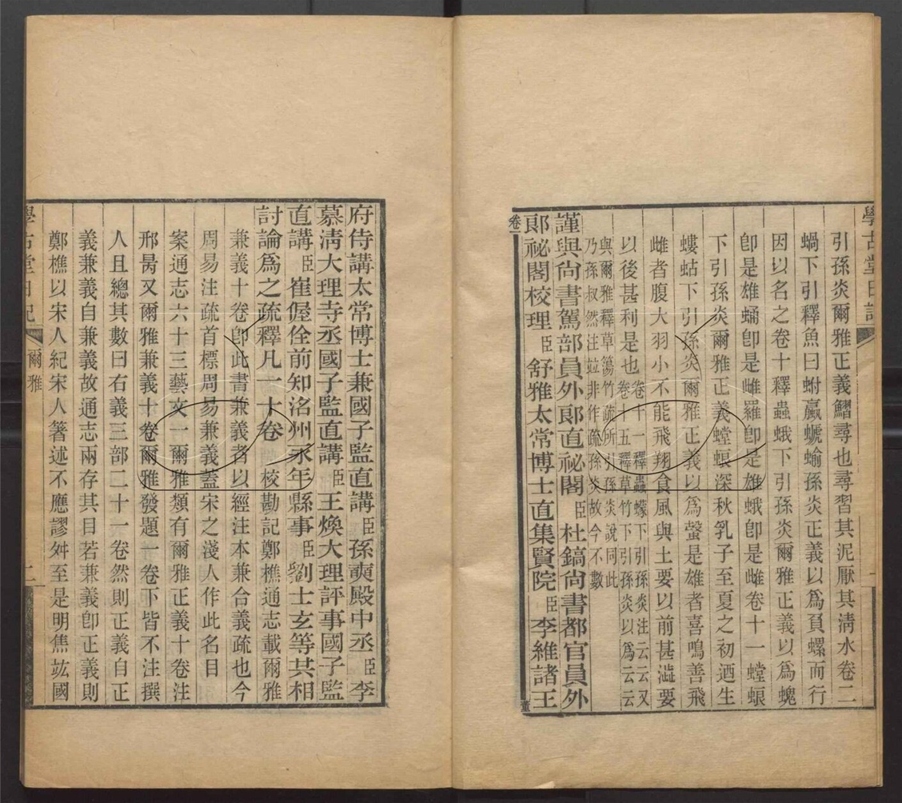 學古堂日記
引孫炎爾雅正義鰼尋也尋習其泥厭其清水卷二
蝸下引釋魚曰蚹蠃螔蝓孫炎正義以為負螺而行
因以名之卷十釋蟲蛾下引孫炎爾雅正義以為
卽是雄蛹卽是雌羅卽是雄蛾卽是雌卷十一螳蜋
下引孫炎爾雅正義螳蜋深秋乳子至夏之初迺生
螻蛄下引孫炎爾雅正義以為螜是雄者喜鳴善飛
雌者腹大羽小不能飛翔食風與土要以前甚澁要
以後甚利是也卷十一釋蟲蠰下引孫炎注云云又
卷五釋草竹下引孫炎以為云云
與爾雅釋草簜竹疏所引孫炎說同此
乃孫叔然注竝非作疏孫炎故今不數
謹與尙書駕部員外郞直祕閣臣杜鎬尙書都官員外
郞祕閣校理臣舒雅太常博士直集賢院臣李維諸王
卷一
府侍講太常博士兼國子監直講臣孫奭殿中丞臣李
慕淸大理寺丞國子監直講臣王煥大理評事國子監
直講臣崔偓佺前知洺州永年縣事臣劉士玄等共相
討論為之疏釋凡一十卷 校勘記鄭樵通志載爾雅
兼義十卷卽此書兼義者以經注本兼合義疏也今
周易注疏首標周易兼義蓋宋之淺人作此名目
案通志六十三藝文一爾雅類有爾雅正義十卷注
邢昺又爾雅兼義十卷爾雅發題一卷下皆不注撰
人且總其數曰右義三部二十一卷然則正義自正
義兼義自兼義故通志兩存其目若兼義卽正義則
鄭樵以宋人紀宋人箸述不應謬舛至是明焦竑國
學古堂日記
爾雅
二